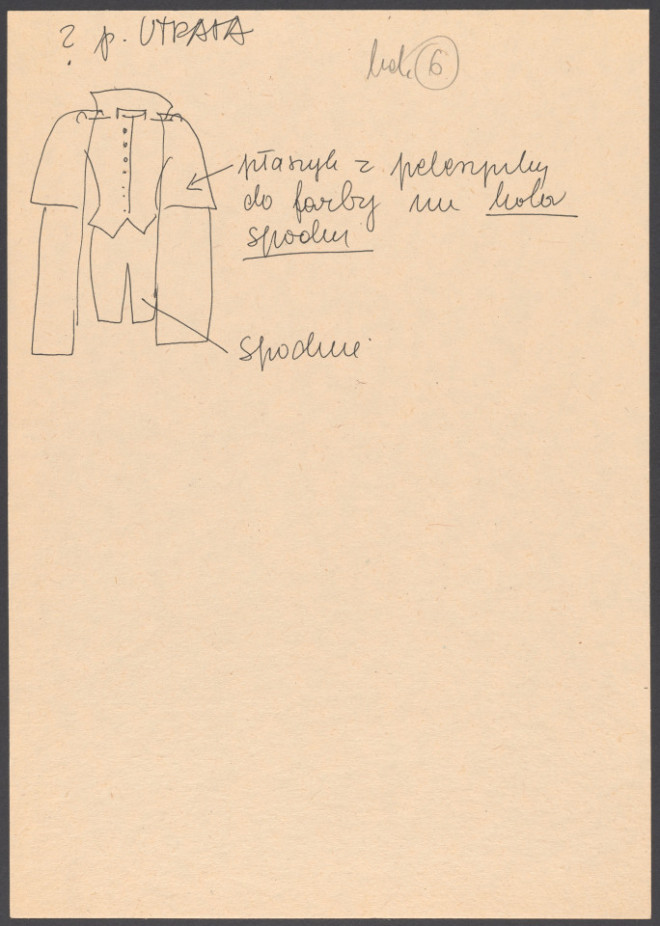 ? p. UTRATA
kol. 6
płaszyk z pelerynky
do farby na kolor
spodni
Spodnie